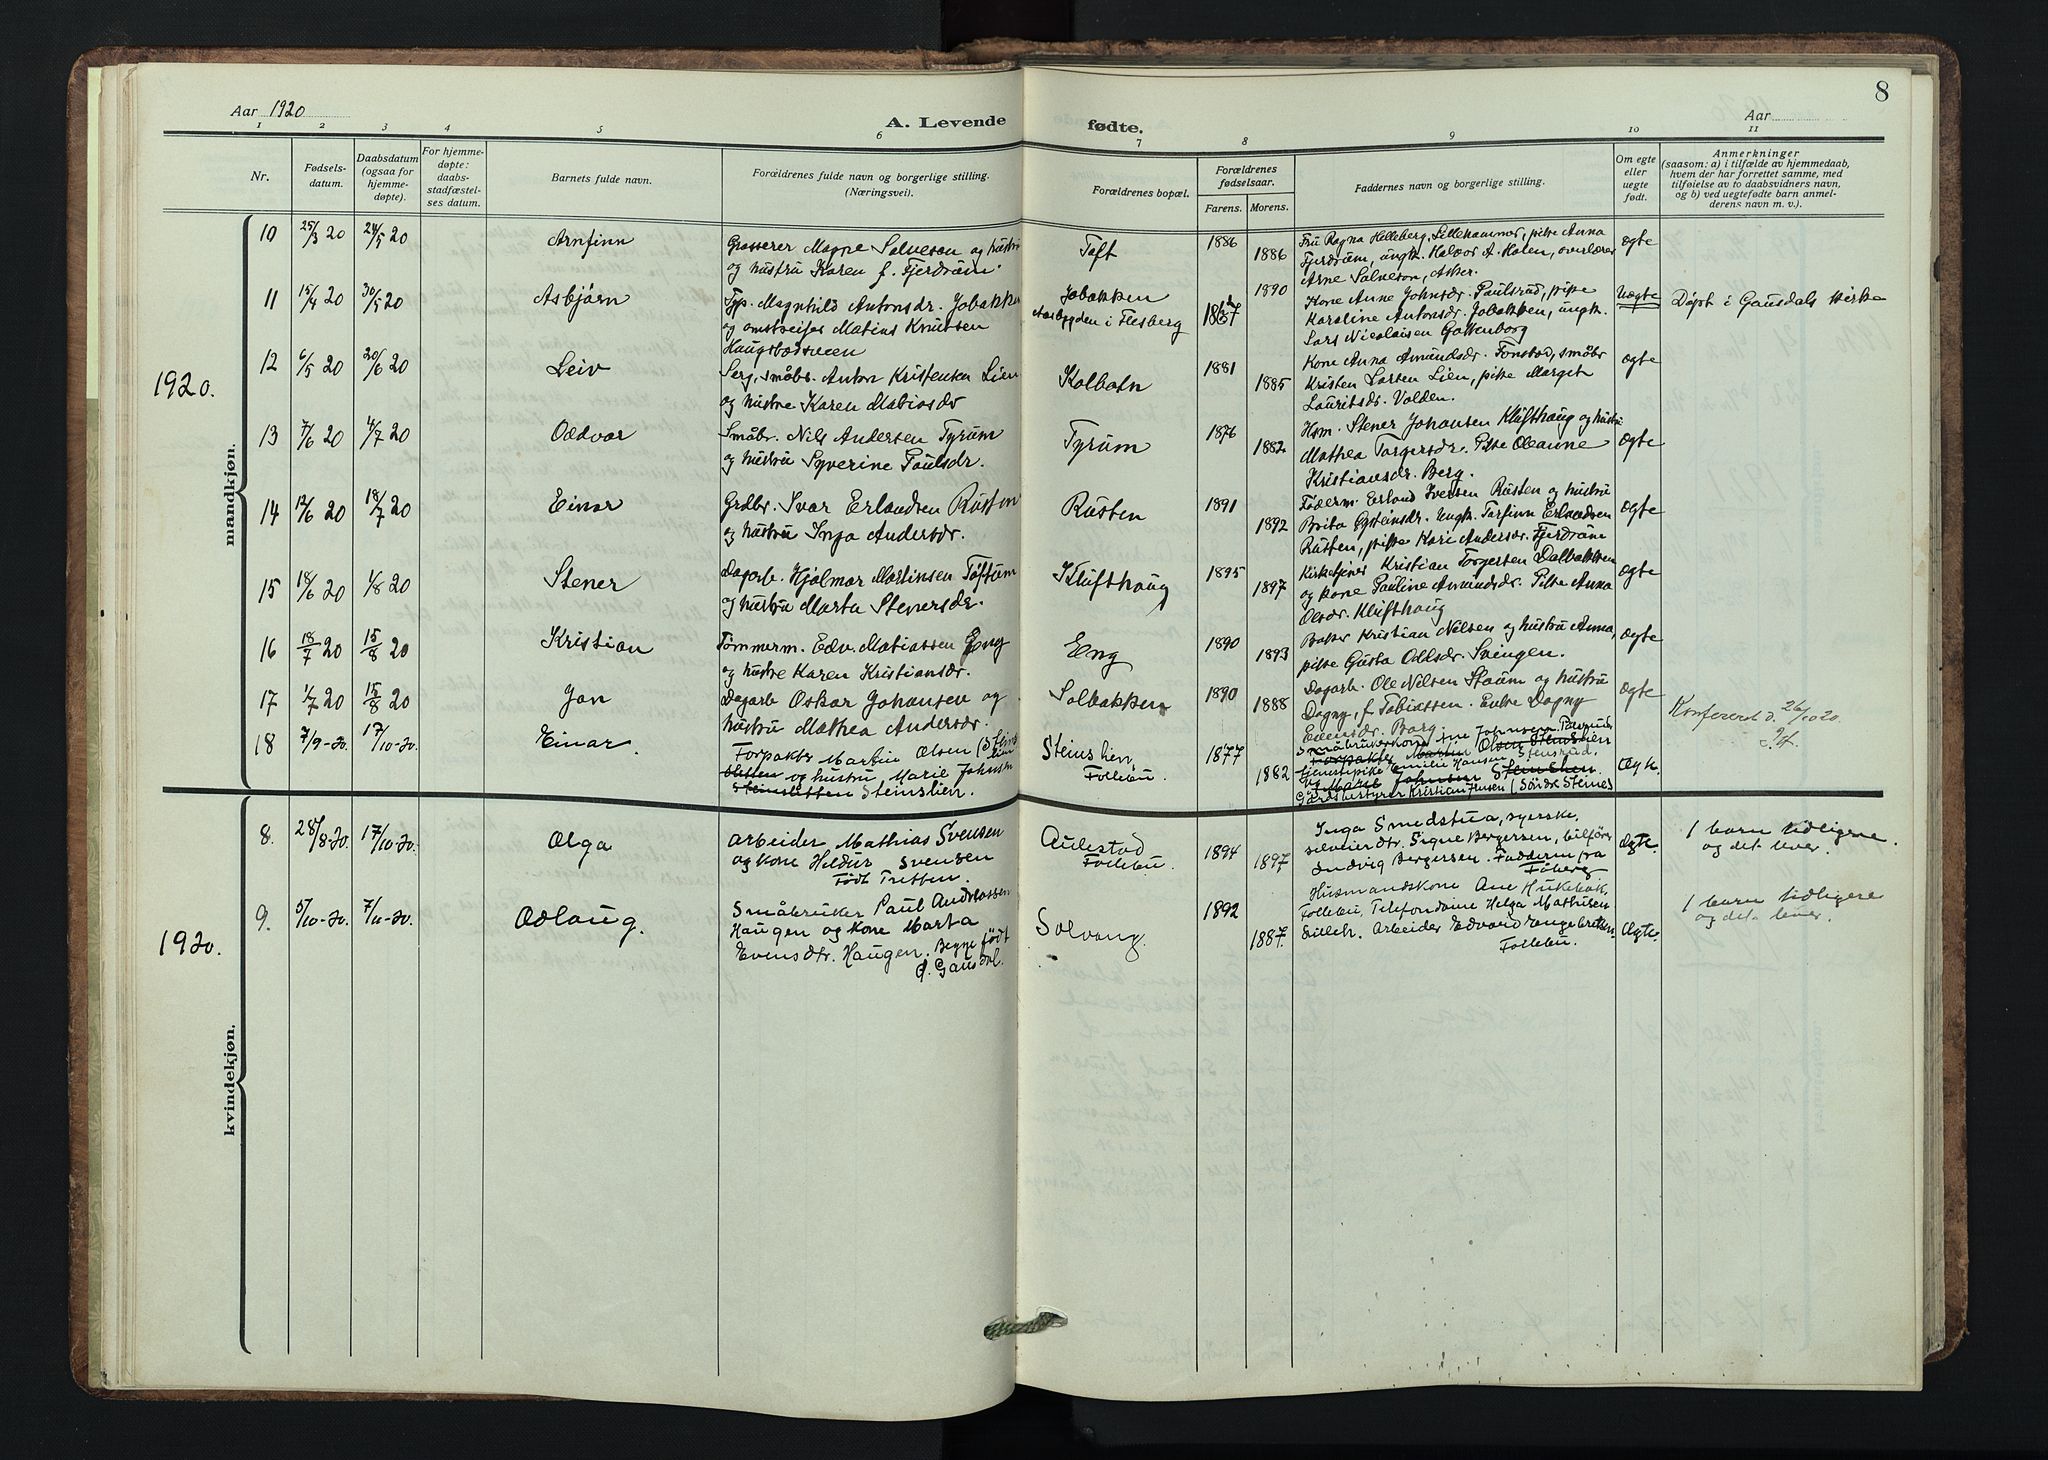 8
Aar 1920
A. Levende fødte.
Aar
1 2 3 4 5 6 7 8 9 10 11
Nr.
Fødsels-
datum.
Daabsdatum
(ogsaa for
hjemme-
døpte).
For hjemme-
døpte:
daabs-
stadfæstel-
ses datum.
Barnets fulde navn.
Forældrenes fulde navn og borgerlige stilling.
(Næringsvei).
Forældrenes bopæl.
Forældrenes
fødselsaar.
Farens. Morens.
Faddernes navn og borgerlige stilling.
Om egte
eller
uegte
født.
Anmerkninger
(saasom: a) i tilfælde av hjemmedaab,
hvem der har forrettet samme, med
tilføielse av to daabsvidners navn,
og b) ved uegtefødte barn anmel-
derens navn m. v.).
1920.
mandkjøn.
10 25/3 20 24/5 20 Arnfinn
Grosserer Magne Salveson og hustru
og hustru Karen f. Fjerdrum.
Toft 1886 1886
Fru Ragna Helleberg, Lillehammer, pike Anna
Fjerdrum, ungk. Halvor A. Holen, overlærer
Arne Salveson, Asker.
egte
11 15/4 20 30/5 20 Asbjørn
Typ. Magnhild Antonsdr. Jobakken
og omstreifer Matius Knutsen
Haugsbødsveen
Jobakken
i Flesberg
1890
Kone Anne Johnsdr. Paulsrud, pike
Karoline Antonsdr. Jobakken, ungk.
Lars Nicolaisen
Uegte
Døpt i Gausdals kirke
12 6/5 20 20/6 20 Leiv
Serg., småbr. Anton Kristensen Lien
og hustru Karen Matiasdr
Kolbotn 1881 1885
Kone Anna Amundsdr. Fonstad, småbr
Kristen Larsen Lien, pike Margit
Lauritsdr. Volden.
egte
13 7/6 20 4/7 20 Oddvar
Småbr. Nils Andersen Tyrum
og hustru Syverine Paulsdr.
Tyrum 1876 1882
Hsm. Stener Johansen Klufthaug og hustru
Mathea Torgersdr. Pike Oleanne
Kristiansdr. Berg.
egte
14 12/6 20 18/7 20 Einar
Grdbr. Ivar Erlandsen Rusten
og hustru Inga Andersdr.
Rusten 1891 1892
Føderm. Erland Iversen Rusten og hustru
Brita Øysteinsdr. Ungk. Torfinn Erlandsen
Rusten, pike Kari Andersdr. Fjerdrum
egte
15 18/6 20 1/8 20 Stener
Dagarb. Hjalmar Martinsen Toftum
og hustru Marta Stenersdr.
Klufthaug 1895 1897
Kirketjener Kristian Torgersen Dalbakken
og kone Pauline Amundsdr. Pike Anna
Olsdr. Klufthaug
egte
16 18/7 20 15/8 20 Kristian
Tømmerm. Edv. Matiassen Eng
og hustru Karen Kristiansdr.
Eng 1890 1893
Baker Kristian Nilsen og hustru Anna,
pike Gusta Olsdr. Svingen.
egte
17 1/7 20 15/8 20 Jan
Dagarb Oskar Johansen og
hustru Mathea Andersdr.
Solbakken 1890 1888
Dagarb. Ole Nilsen Staum og hustru
Dagny, f. Tobiassen. Enke Dagny
Evensdr. Borg.
egte
Konferert d. 26/10 20.
18 7/9-20. 17/10-20. Einar.
Forpakter Martin Olsen (Steins
lien og hustru, Marie Johnsen
Steinslien.
Steinslien,
Follebu.
1877 1882
Småbrukerkone
Forpakter Martin Olsen Steinslien
tjenestepike Emilie Hansen Stensrud.
og Marie Johnsen Steinslien
Gårdsbestyrer Kristian Jensen (Søndre Steine)
Ægte.
1920.
kvindekjøn.
8. 28/8-20. 17/10-20. Olga
Arbeider Mathias Svensen
og kone Heldur Svensen
Født Tretten.
Aulestad
Follebu.
1894 1897
Inga Smedstua, syerske,
Signe Bergersen, bilfører
Ludvig Bergersen. Fadderne fra
Føberg
Ægte.
1 barn tidligere.
og det lever.
9. 5/10-20. 7/11-20. Odlaug.
Småbruker Paul Andreassen
Haugen og kone Marta
Evensdtr. Haugen. Begge født
i Gausdal.
Solvang. 1892 1887.
Husmandskone Ane
Follebu, Telefondame Helga Mathisen
Lilleh. Arbeider Edvard Engebretsen.
Follebu.
Ægte.
1 barn tidligere
og det lever.